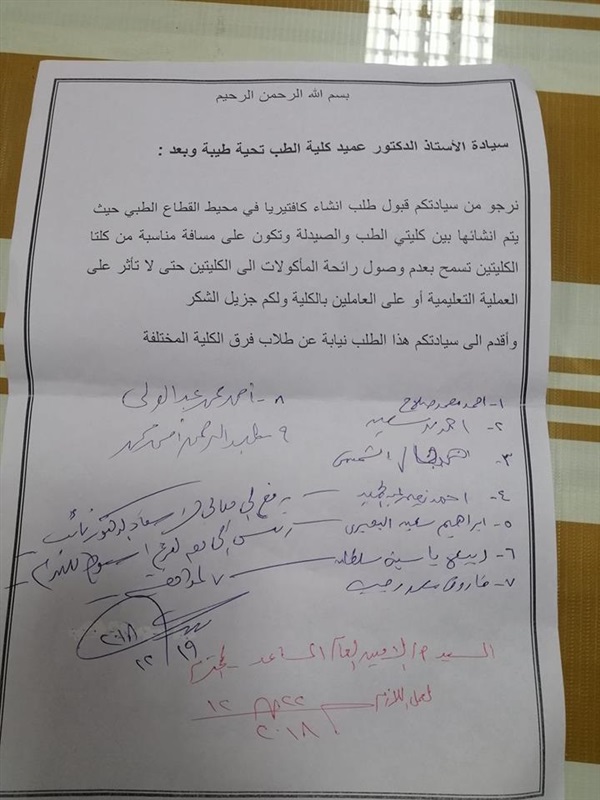 بسم الله الرحمن الرحيم
سيادة الأستاذ الدكتور عميد كلية الطب تحية طيبة وبعد :
نرجو من سيادتكم قبول طلب انشاء كافتيريا في محيط القطاع الطبي حيث
يتم انشائها بين كليتي الطب والصيدلة وتكون على مسافة مناسبة من كلتا
الكليتين تسمح بعدم وصول رائحة المأكولات الى الكليتين حتى لا تأثر على
العملية التعليمية أو على العاملين بالكلية ولكم جزيل الشكر
وأقدم الى سيادتكم هذا الطلب نيابة عن طلاب فرق الكلية المختلفة
١- احمد محمد صلاح
٢- احمد سعيد
٣- الشميسي
٤- احمد
٥- ابراهيم سعيد البعيري
٦- ياسين سلطان
٧- فاروق محمد رجب
٨- أحمد عبد المولى
٩ عبد الرحمن
يرفع الى معالي السيد الدكتور نائب
رئيس
١٩/١٢
٢٠١٨
السيد الأمين العام المساعد
لعمل اللازم
٢٢
١٢
٢٠١٨